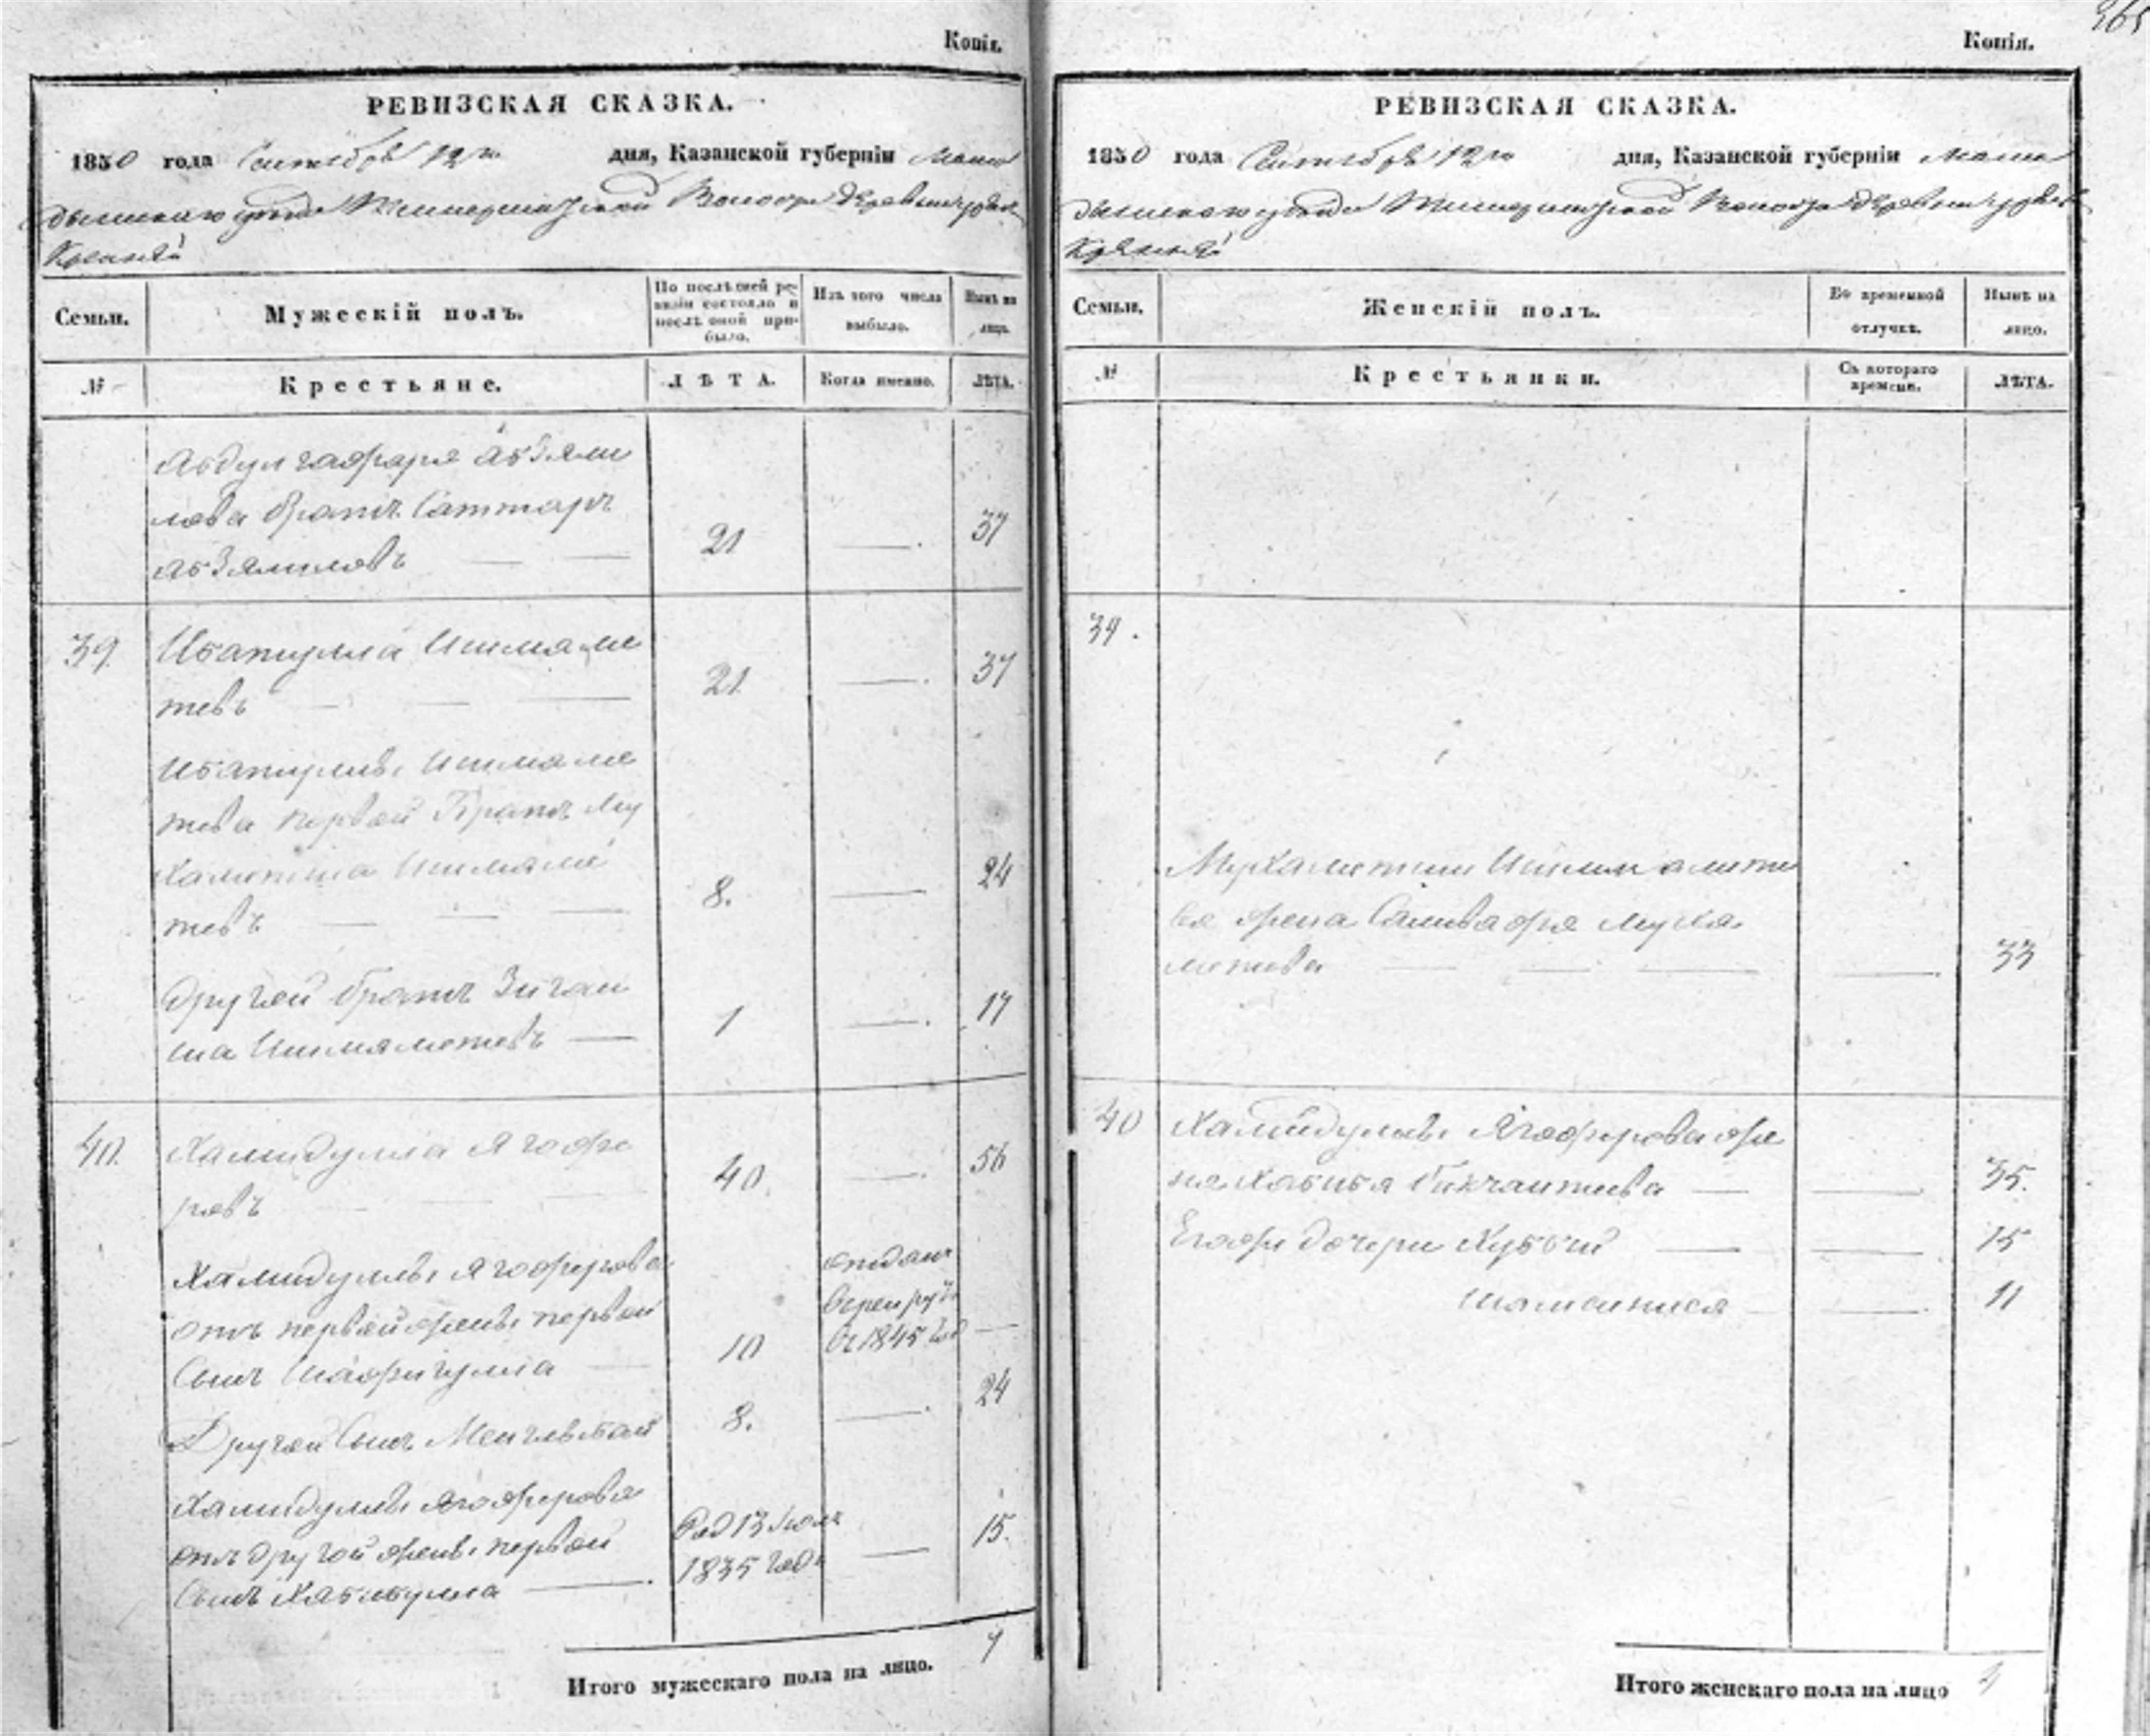 Копія.
РЕВИЗСКАЯ СКАЗКА.
1850 года Сентября 12го дня, Казанской губерніи Мама
дышскаго уезда Волости Деревни
Семьи.
Мужескій полъ.
По послѣдней ре-
визіи состояло и
послѣ оной при-
было.
Изъ того числа
выбыло.
Нынѣ на
лицо.
№
Крестьяне.
ЛѢТА.
Когда именно.
ЛѢТА.
Абдулгафаря Абзяли
лова братъ Саттаръ
Абзялиловъ 21 37
39. Ибатулла Ишмаме
тевъ 21 37
Ибатуллы Ишмаме
тева первой братъ Му
хаметша Ишмаме
тевъ 8. 24
другой братъ Зиган
ша Ишмаметевъ 1 17
40. Халидулла Ягофе
ровъ 40. 56
Халидуллы Ягоферова
отъ первой жены первой
Сынъ Шафигулла 10
отданъ
в рекруты
въ 1845 год
Другой Сынъ 8. 24
Халидуллы Ягоферова
отъ другой жены первой
Сынъ Хабибулла
Род 13 Июля
1835 года
15.
Итого мужескаго пола на лицо.
Копія.
РЕВИЗСКАЯ СКАЗКА.
1850 года Сентября 12го дня, Казанской губерніи Мама
дышскаго уезда Волости Деревни
Семьи.
Женскій полъ.
Во временной
отлучкѣ.
Нынѣ на
лицо.
№
Крестьянки.
Съ котораго
времени.
ЛѢТА.
39.
Мухаметши Ишмамете
ва жена Муха
метева 33
40 Халидуллы Ягоферова же
на Хабибя 35.
Егожъ дочери 15
11
Итого женскаго пола на лицо